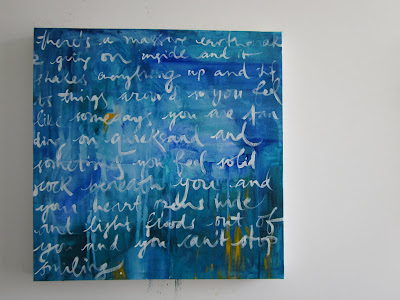 there's a massive earthquak
e going on inside and it
shakes everything up and lif
ts things around so you feel
like some days you are stan
ding on quicksand and
sometimes you feel solid
rock beneath you and
your heart opens wide
and light floods out of
you and you can't stop
smiling